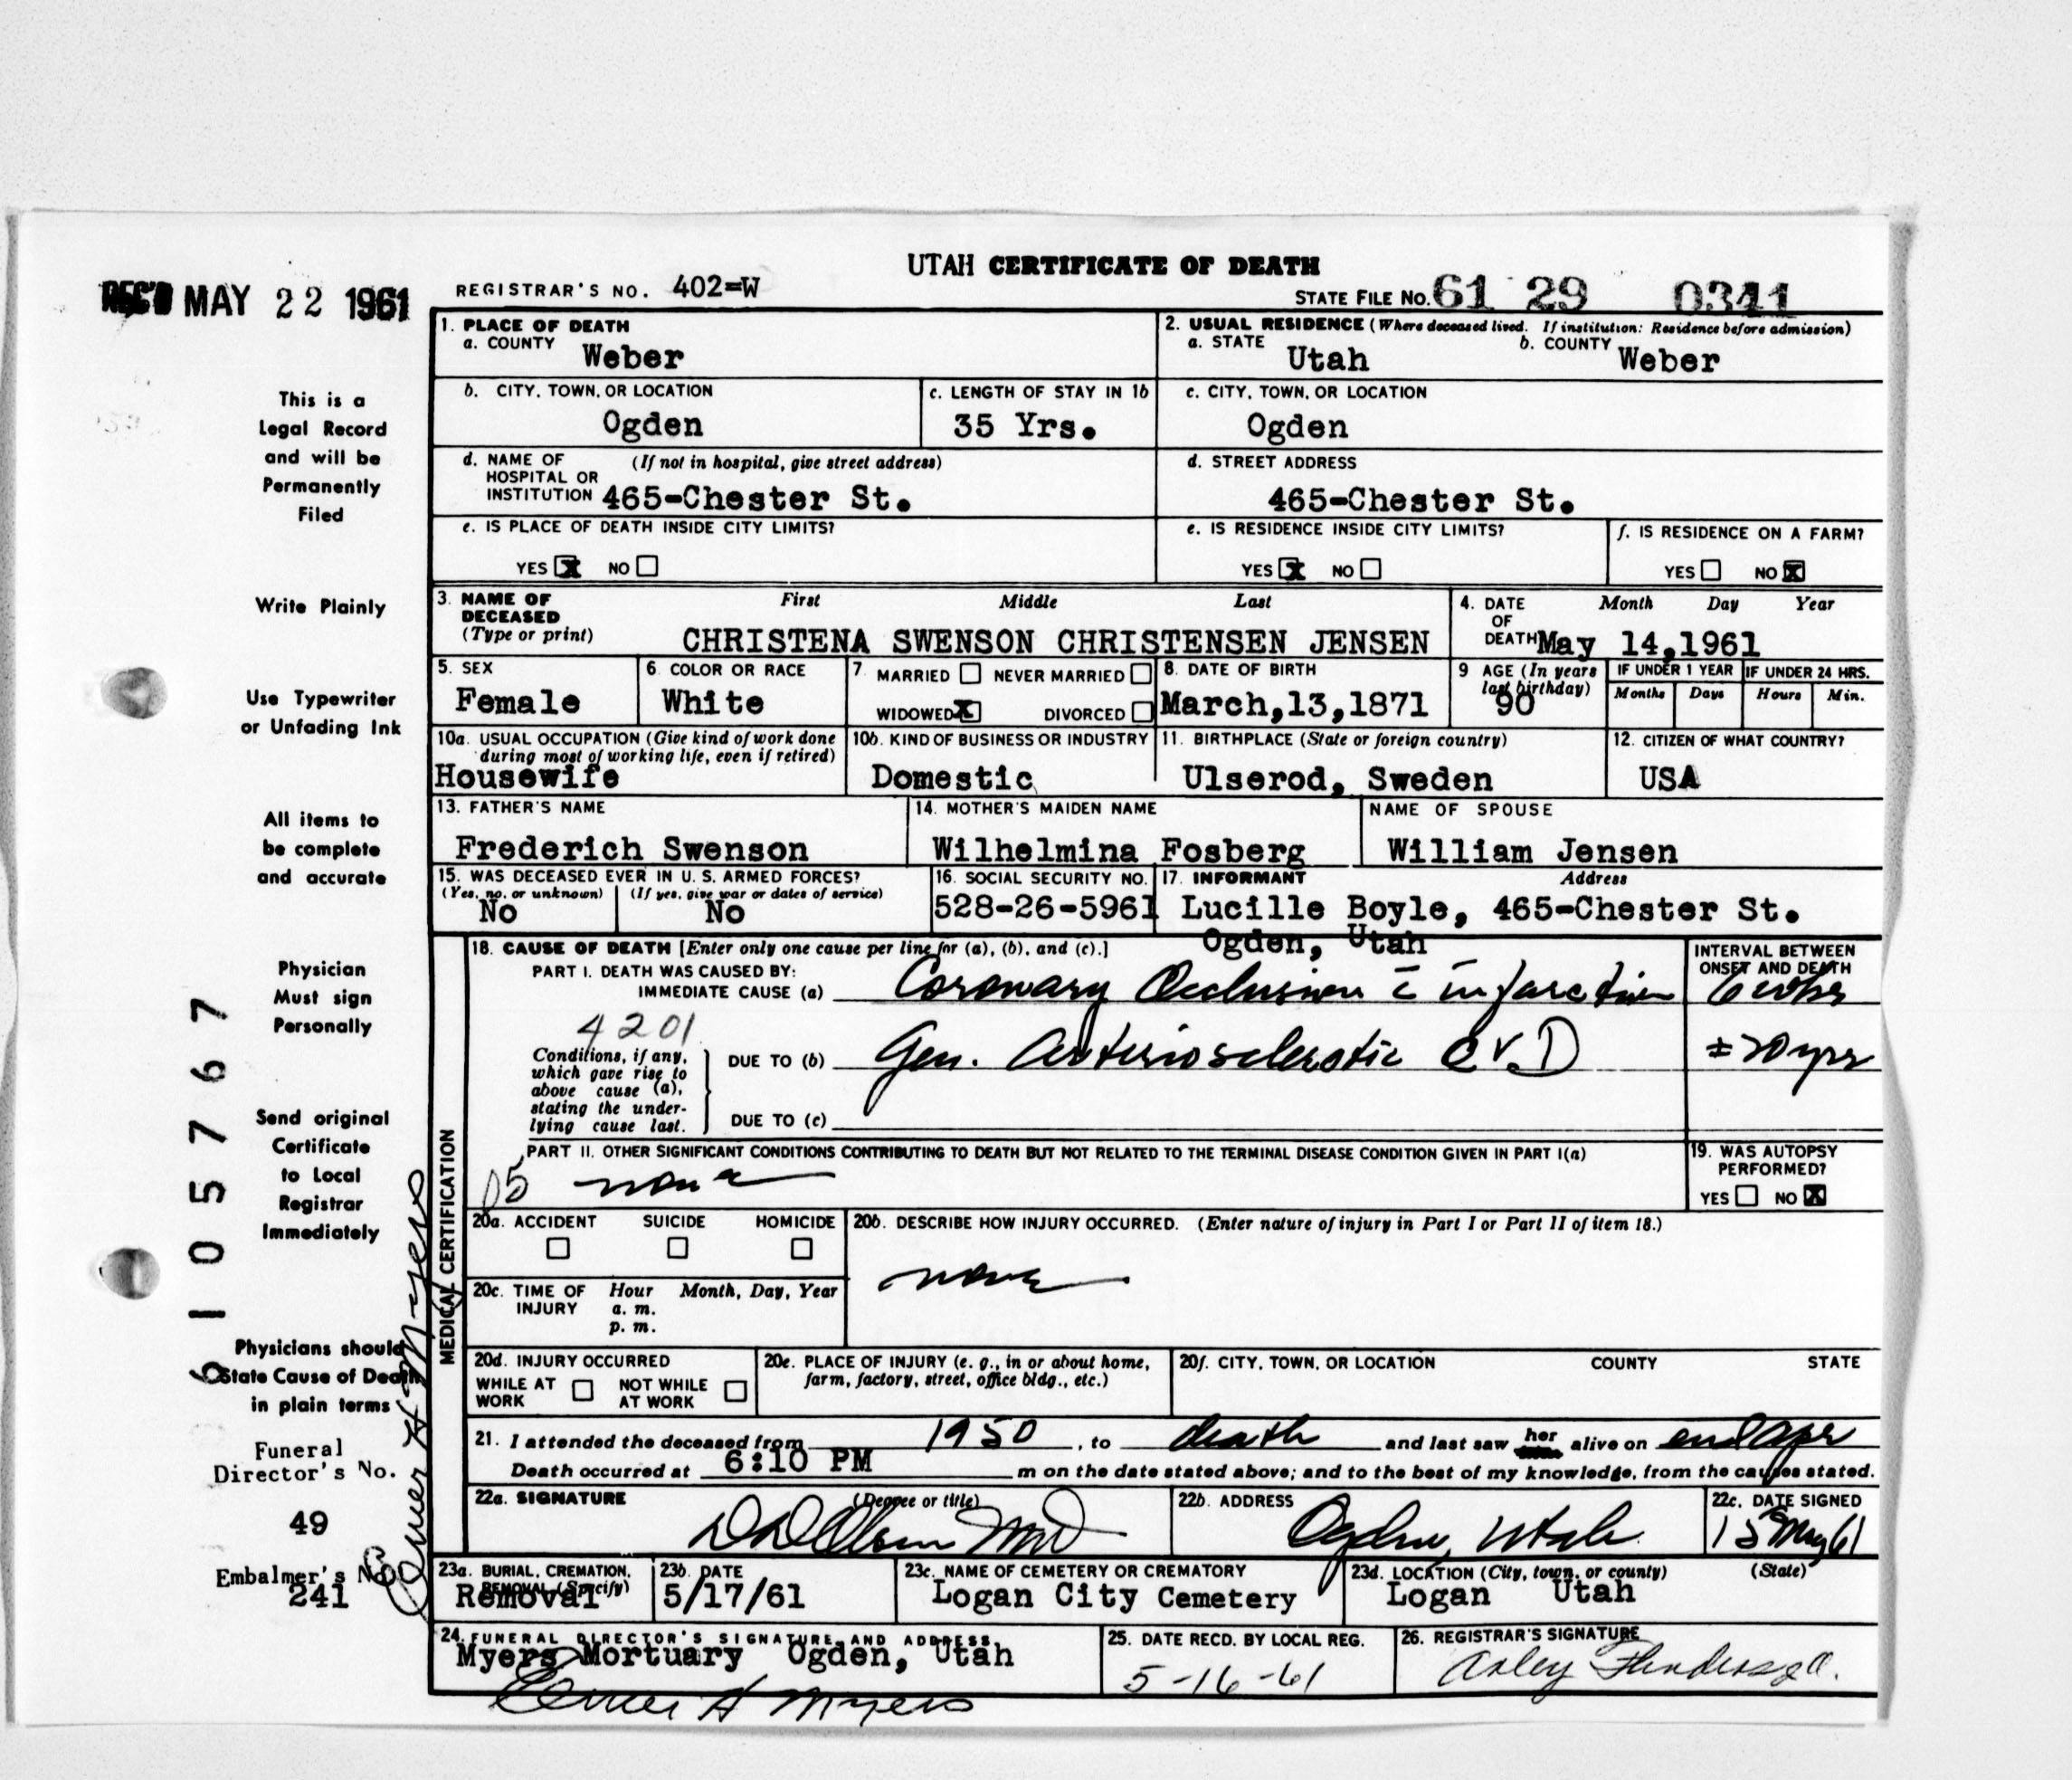 UTAH CERTIFICATE OF DEATH
REC'D MAY 22 1961
REGISTRAR'S NO. 402=W
STATE FILE No. 61 29 0341
This is a
Legal Record
and will be
Permanently
Filed
Write Plainly
Use Typewriter
or Unfading Ink
All items to
be complete
and accurate
Physician
Must sign
Personally
Send original
Certificate
to Local
Registrar
Immediately
Physicians should
State Cause of Death
in plain terms
Funeral
Director's No.
49
Embalmer's No.
241
6105767
Elmer H Myers
1. PLACE OF DEATH
a. COUNTY Weber
2. USUAL RESIDENCE (Where deceased lived. If institution: Residence before admission)
a. STATE Utah b. COUNTY Weber
b. CITY, TOWN, OR LOCATION
Ogden
c. LENGTH OF STAY IN 1b
35 Yrs.
c. CITY, TOWN, OR LOCATION
Ogden
d. NAME OF (If not in hospital, give street address)
HOSPITAL OR
INSTITUTION 465-Chester St.
d. STREET ADDRESS
465-Chester St.
e. IS PLACE OF DEATH INSIDE CITY LIMITS?
YES X NO
e. IS RESIDENCE INSIDE CITY LIMITS?
YES X NO
f. IS RESIDENCE ON A FARM?
YES NO X
3. NAME OF First Middle Last
DECEASED
(Type or print) CHRISTENA SWENSON CHRISTENSEN JENSEN
4. DATE Month Day Year
OF
DEATH May 14,1961
5. SEX
Female
6. COLOR OR RACE
White
7 MARRIED NEVER MARRIED
WIDOWED X DIVORCED
8. DATE OF BIRTH
March,13,1871
9 AGE (In years
last birthday)
90
IF UNDER 1 YEAR IF UNDER 24 HRS.
Months Days Hours Min.
10a. USUAL OCCUPATION (Give kind of work done
during most of working life, even if retired)
Housewife
10b. KIND OF BUSINESS OR INDUSTRY
Domestic
11. BIRTHPLACE (State or foreign country)
Ulserod, Sweden
12. CITIZEN OF WHAT COUNTRY?
USA
13. FATHER'S NAME
Frederich Swenson
14. MOTHER'S MAIDEN NAME
Wilhelmina Fosberg
NAME OF SPOUSE
William Jensen
15. WAS DECEASED EVER IN U. S. ARMED FORCES?
(Yes, no, or unknown) (If yes, give war or dates of service)
No No
16. SOCIAL SECURITY NO.
528-26-5961
17. INFORMANT Address
Lucille Boyle, 465-Chester St.
Ogden, Utah
MEDICAL CERTIFICATION
18. CAUSE OF DEATH [Enter only one cause per line for (a), (b), and (c).]
INTERVAL BETWEEN
ONSET AND DEATH
PART I. DEATH WAS CAUSED BY:
IMMEDIATE CAUSE (a) Coronary Occlusion c̄ infarction
4201
Conditions, if any,
which gave rise to
above cause (a),
stating the under-
lying cause last.
DUE TO (b) Gen. Arteriosclerotic CVD ± 20 yrs
DUE TO (c)
PART II. OTHER SIGNIFICANT CONDITIONS CONTRIBUTING TO DEATH BUT NOT RELATED TO THE TERMINAL DISEASE CONDITION GIVEN IN PART I(a)
05 none
19. WAS AUTOPSY
PERFORMED?
YES NO X
20a. ACCIDENT SUICIDE HOMICIDE
20b. DESCRIBE HOW INJURY OCCURRED. (Enter nature of injury in Part I or Part II of item 18.)
none
20c. TIME OF Hour Month, Day, Year
INJURY a. m.
p. m.
20d. INJURY OCCURRED
WHILE AT NOT WHILE
WORK AT WORK
20e. PLACE OF INJURY (e. g., in or about home,
farm, factory, street, office bldg., etc.)
20f. CITY, TOWN, OR LOCATION COUNTY STATE
21. I attended the deceased from 1950, to death and last saw her alive on end Apr
Death occurred at 6:10 PM m on the date stated above; and to the best of my knowledge, from the causes stated.
22a. SIGNATURE (Degree or title)
Olson MD
22b. ADDRESS
Ogden, Utah
22c. DATE SIGNED
15 May 61
23a. BURIAL, CREMATION,
REMOVAL (Specify)
Removal
23b. DATE
5/17/61
23c. NAME OF CEMETERY OR CREMATORY
Logan City Cemetery
23d. LOCATION (City, town, or county) (State)
Logan Utah
24. FUNERAL DIRECTOR'S SIGNATURE AND ADDRESS
Myers Mortuary Ogden, Utah
Elmer H Myers
25. DATE RECD. BY LOCAL REG.
5-16-61
26. REGISTRAR'S SIGNATURE